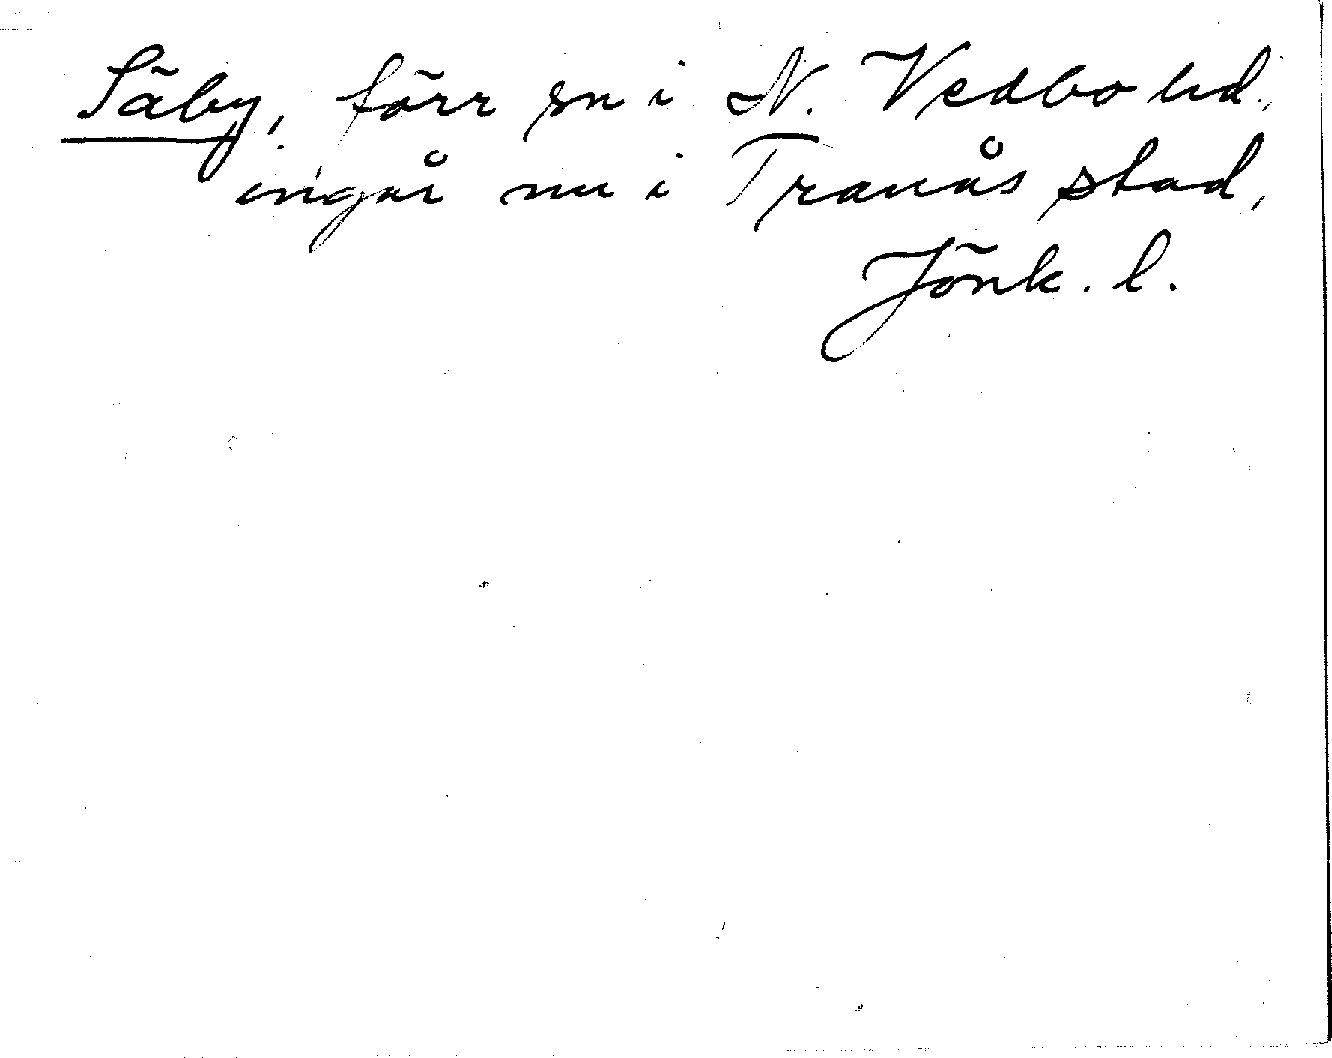 Säby, förr sn i N. Vedbo hd,
ingår nu i Tranås stad,
Jönk. l.